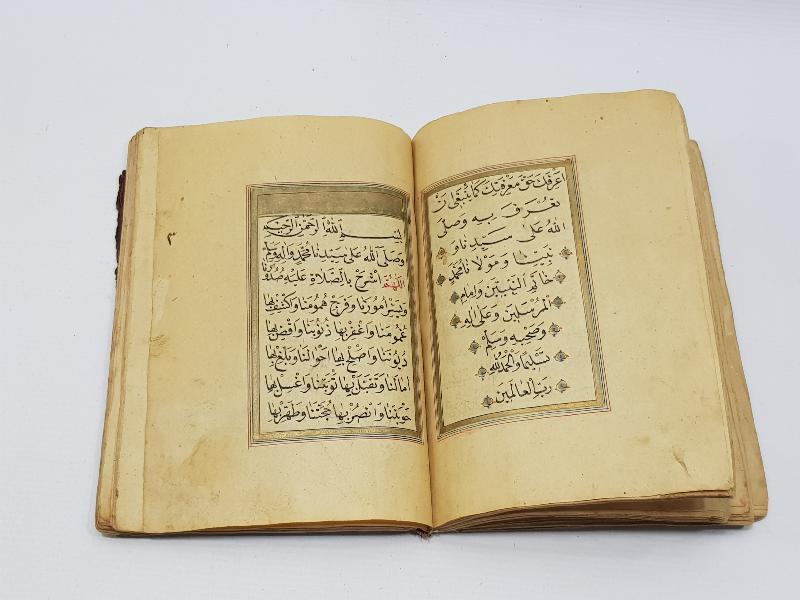 اعرفك حق معرفتك كما ينبغي ان
تعرف به وصلى
الله على سيدنا و
نبينا ومولانا محمد
خاتم النبيين وامام
المرسلين وعلى اله
وصحبه وسلم
تسليما والحمد لله
رب العالمين
٣
بسم الله الرحمن الرحيم
وصلى الله على سيدنا محمد واله وسلم
اللهم اشرح بالصلاة عليه صدورنا
ويسر امورنا وفرج همومنا واكشف بها
غمومنا واغفر بها ذنوبنا واقض بها
ديوننا واصلح بها احوالنا وبلغ بها
امالنا وتقبل بها توبتنا واغسل بها
حوبتنا وانصر بها حجتنا وطهر بها